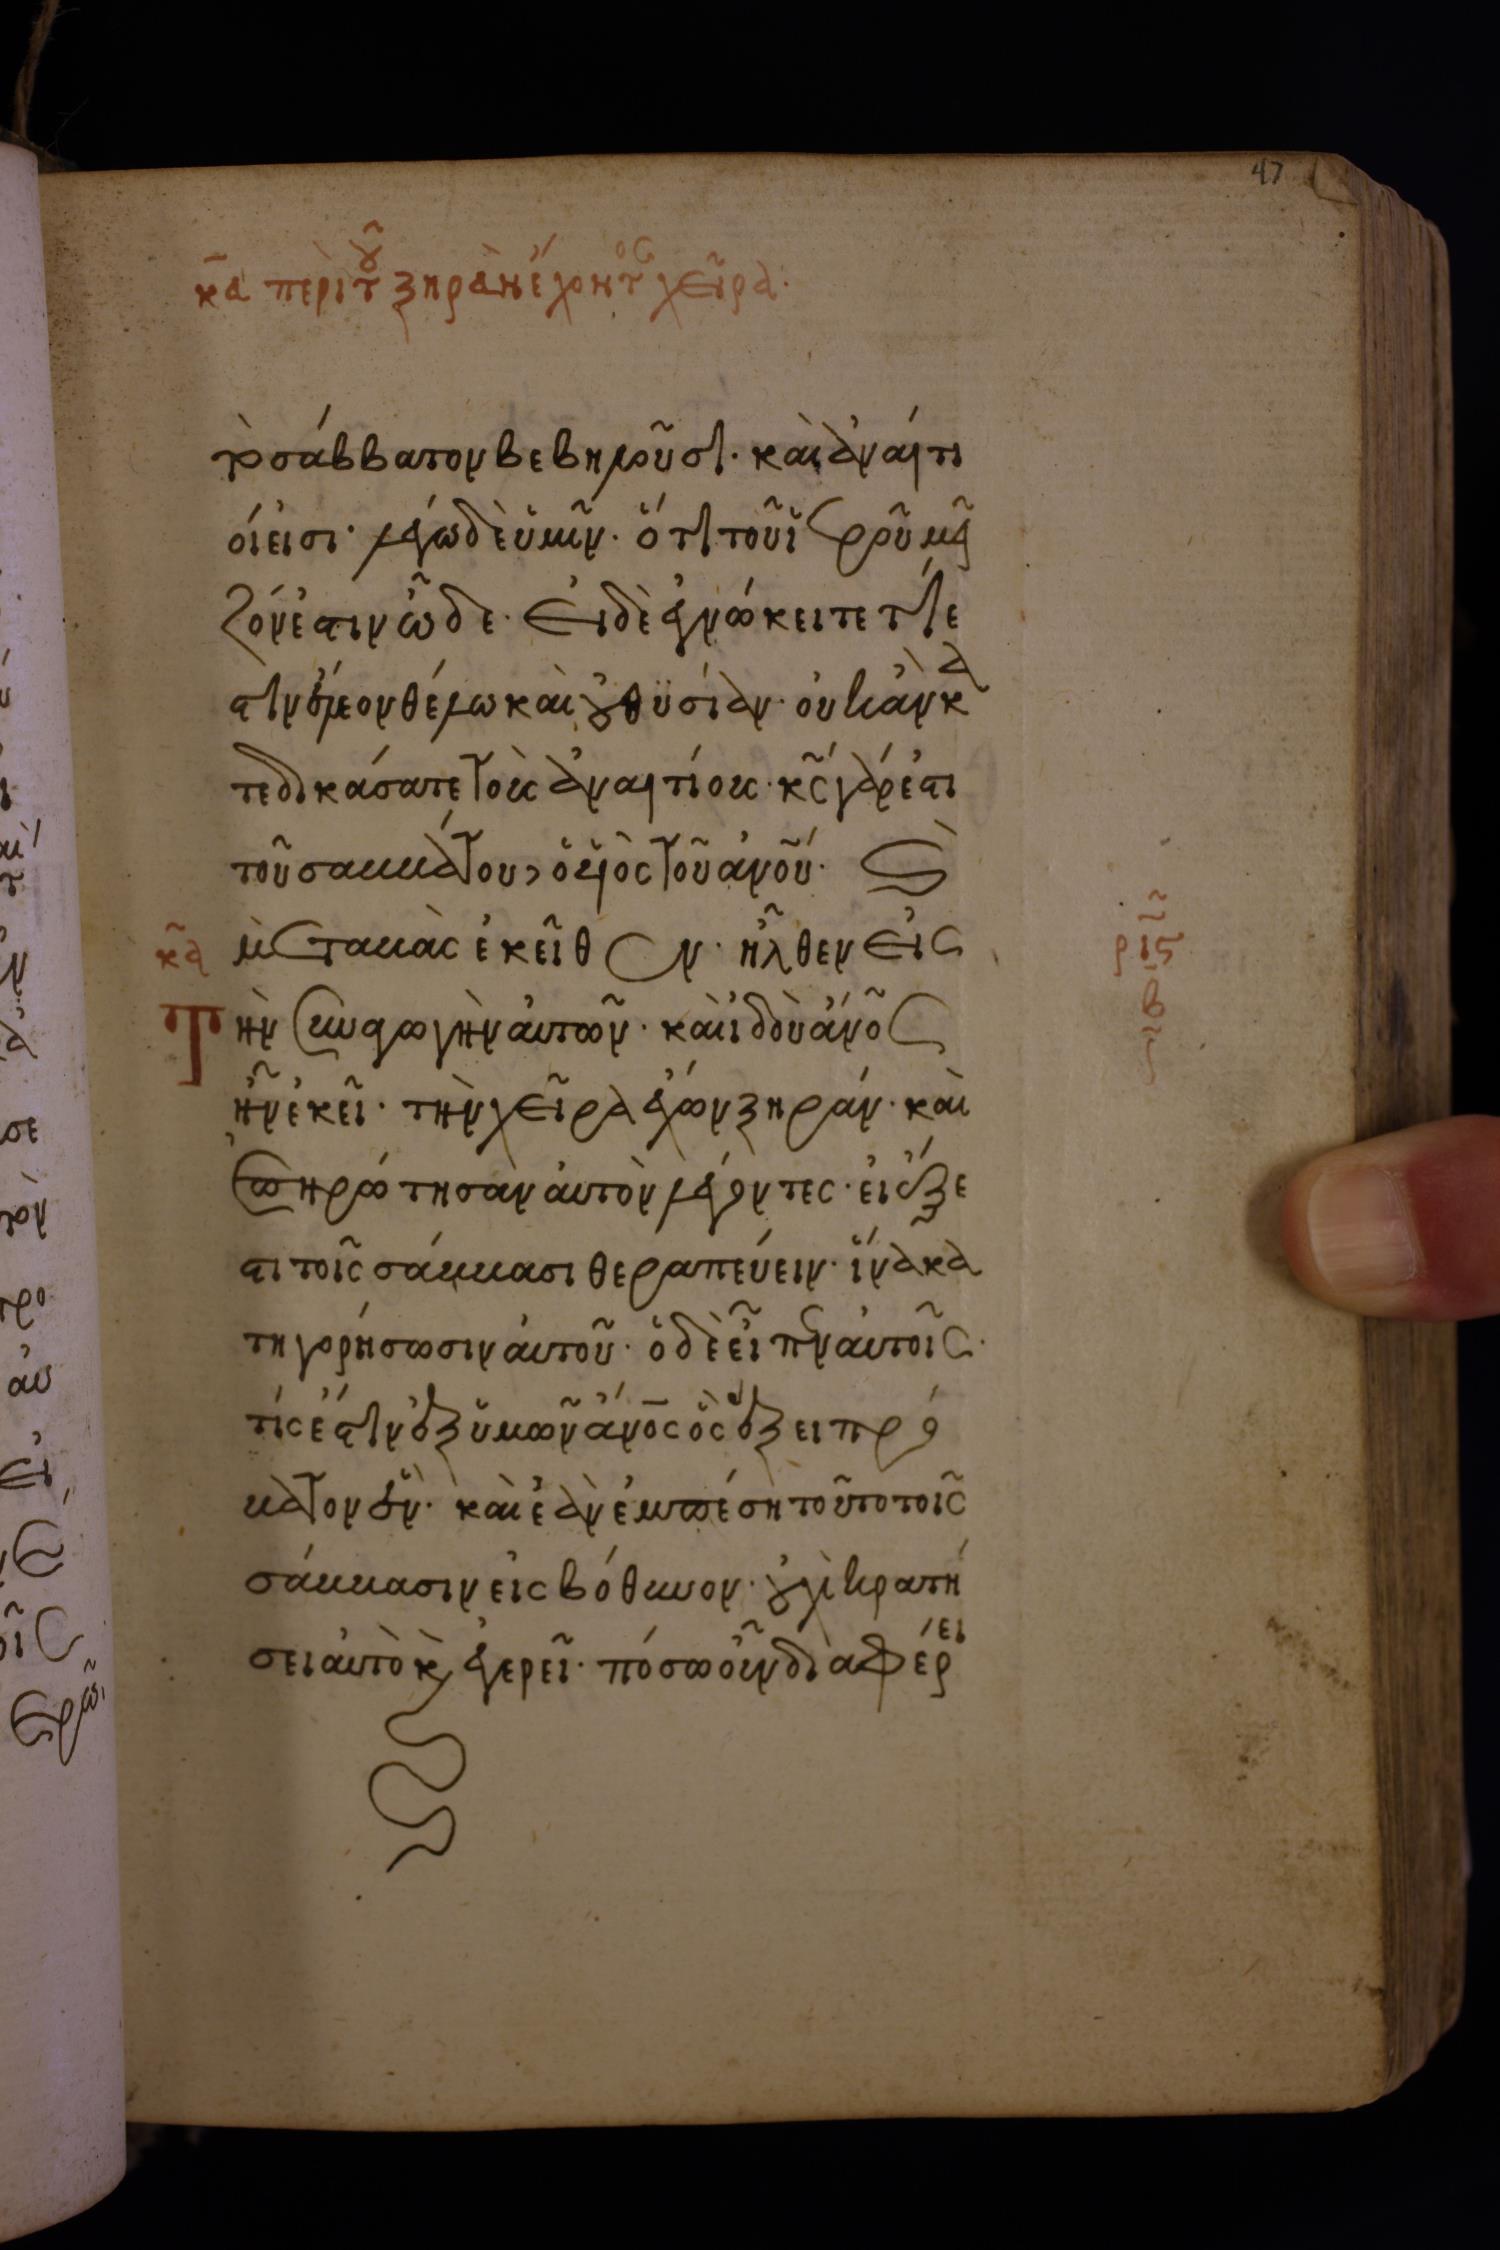 47
κα περὶ τοῦ ξηρὰν ἔχοντος χεῖρα.
τὸ σάββατον βεβηλοῦσι. καὶ ἀναίτι
οί εἰσι. λέγω δὲ ὑμῖν. ὅτι τοῦ ἱεροῦ μεῖ
ζόν ἐστιν ὧδε. Εἰ δὲ ἐγνώκειτε τί ἐ
στιν ἔλεον θέλω καὶ οὐ θυσίαν. οὐκ ἂν κα
τεδικάσατε τοὺς ἀναιτίους. κς γάρ ἐστι
τοῦ σαββάτου, ὁ υἱὸς τοῦ ἀνου. Καὶ
κα μεταβὰς ἐκεῖθεν. ἦλθεν εἰς
ριϛ
β
Τὴν συναγωγὴν αὐτῶν. καὶ ἰδοὺ ἀνος
ἦν ἐκεῖ. τὴν χεῖρα ἔχων ξηράν. καὶ
ἐπηρώτησαν αὐτὸν λέγοντες. εἰ ἔξε
στι τοῖς σάββασι θεραπεύειν. ἵνα κα
τηγορήσωσιν αὐτοῦ. ὁ δὲ εἶπεν αὐτοῖς.
τίς ἔστιν ἐξ ὑμῶν ἀνος ὃς ἕξει πρό
βατον ἕν. καὶ ἐὰν ἐμπέσῃ τοῦτο τοῖς
σάββασιν εἰς βόθυνον. οὐχὶ κρατή
σει αὐτὸ κ ἐγερεῖ. πόσω οὖν διαφέρει